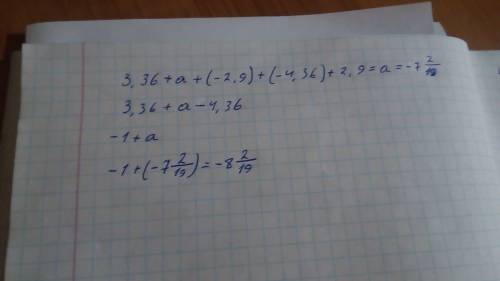 3,36+a+(-2,9)+(-4,36)+2,9=a=-7 2/19
3,36+a-4,36
-1+a
-1+(-7 2/19)=-8 2/19